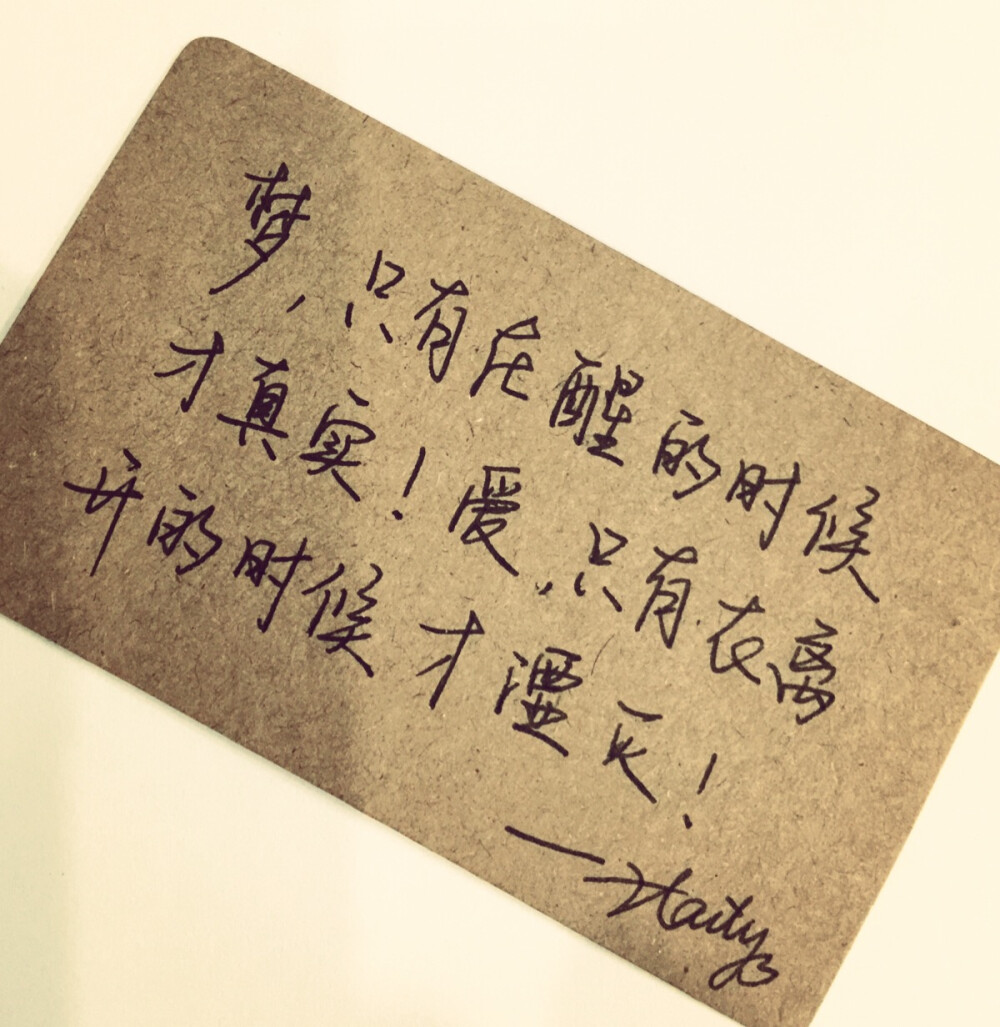 梦，只有在醒的时候
才真实！爱，只有在离
开的时候才湮灭！